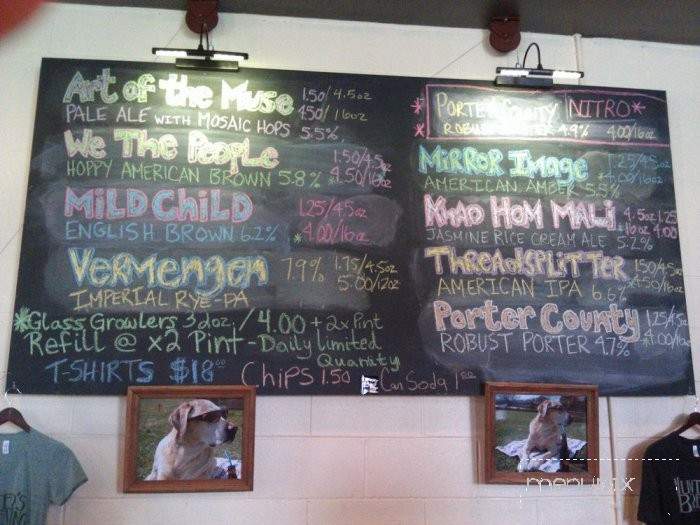 Art of the Muse 1.50/4.5oz
PALE ALE WITH MOSAIC HOPS 5.5% 4.50/16oz
We The People 1.50/4.5oz
HOPPY AMERICAN BROWN 5.8% *4.50/16oz
MiLD CHiLD 1.25/4.5oz
ENGLISH BROWN 6.2% *4.00/16oz
Vermengen 7.9% 1.75/4.5oz
IMPERIAL RYE-PA 5.00/12oz
*Glass Growlers 32oz./4.00 + 2x Pint
Refill @ x2 Pint - Daily Limited
Quantity
T-SHIRTS $18.00 CHiPS 1.50 Can Soda 1.00
*PORTER COUNTY NITRO*
*ROBUST PORTER 4.9% 4.00/16oz
MiRROR IMAGE 1.25/4.5oz
AMERICAN AMBER 5.5% *4.00/16oz
KHAO HOM MALi 4.5oz 1.25
JASMINE RICE CREAM ALE 5.2% 16oz 4.00
THREADSPLITTER 1.50/4.5oz
AMERICAN IPA 6.6% *4.50/16oz
Porter County 1.25/4.5oz
ROBUST PORTER 4.7% *4.00/16oz